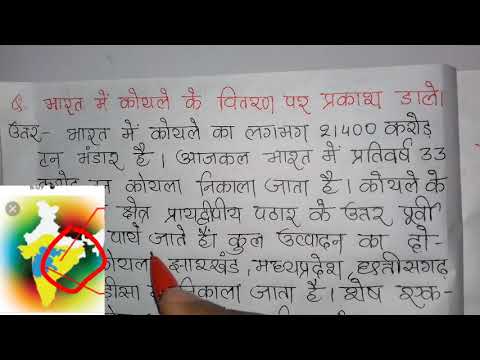 Q. भारत में कोयले के वितरण पर प्रकाश डाले।
उत्तर- भारत में कोयले का लगभग 21400 करोड़
टन भंडार है। आजकल भारत में प्रतिवर्ष 33
कोयला निकाला जाता है। कोयले के
क्षेत्र प्रायद्वीपीय पठार के उत्तर पूर्वी
पाये जाते हैं। कुल उत्पादन का दो-
झारखंड, मध्यप्रदेश, छत्तीसगढ़
निकाला जाता है। शेष एक-